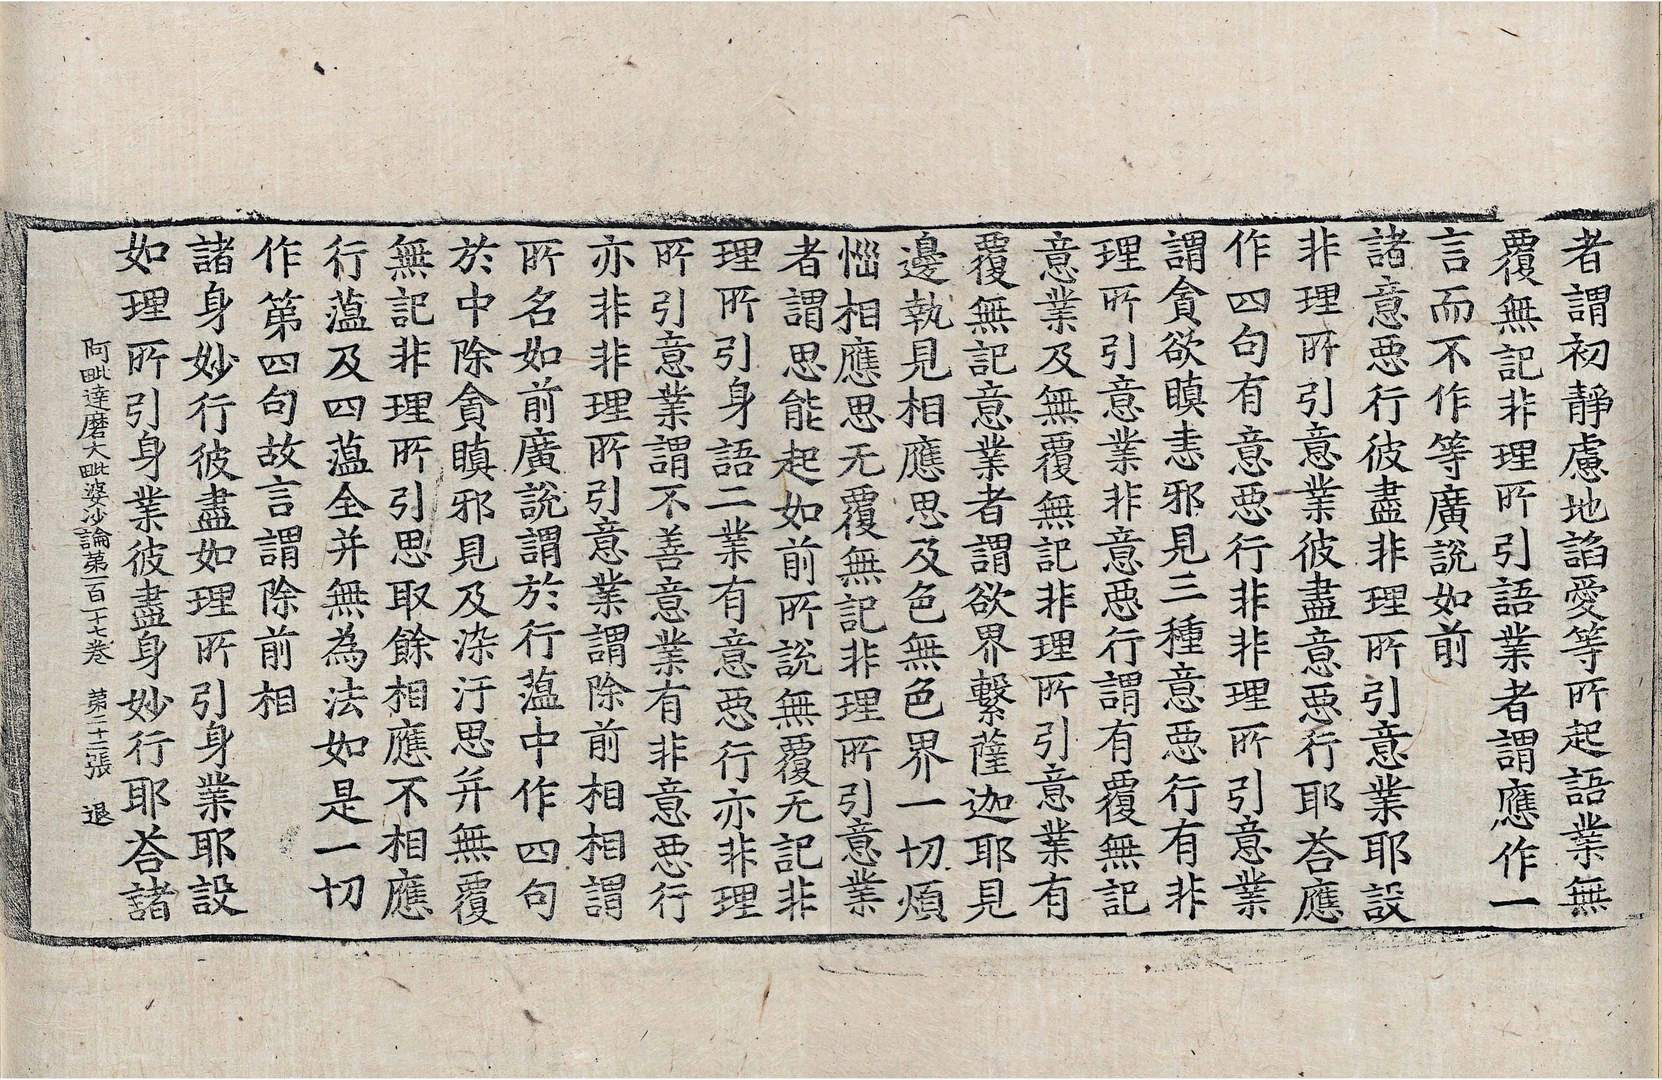 者謂初靜慮地諂愛等所起語業無
覆無記非理所引語業者謂應作一
言而不作等廣說如前
諸意惡行彼盡非理所引意業耶設
非理所引意業彼盡意惡行耶荅應
作四句有意惡行非非理所引意業
謂貪欲瞋恚邪見三種意惡行有非
理所引意業非意惡行謂有覆無記
意業及無覆無記非理所引意業有
覆無記意業者謂欲界繫薩迦耶見
邊執見相應思及色無色界一切煩
惱相應思无覆無記非理所引意業
者謂思能起如前所說無覆无記非
理所引身語二業有意惡行亦非理
所引意業謂不善意業有非意惡行
亦非非理所引意業謂除前相相謂
所名如前廣說謂於行蘊中作四句
於中除貪瞋邪見及染汙思并無覆
無記非理所引思取餘相應不相應
行蘊及四蘊全并無為法如是一切
作第四句故言謂除前相
諸身妙行彼盡如理所引身業耶設
如理所引身業彼盡身妙行耶荅諸
阿毗達磨大毗婆沙論第一百一十七卷 第二十二張 退